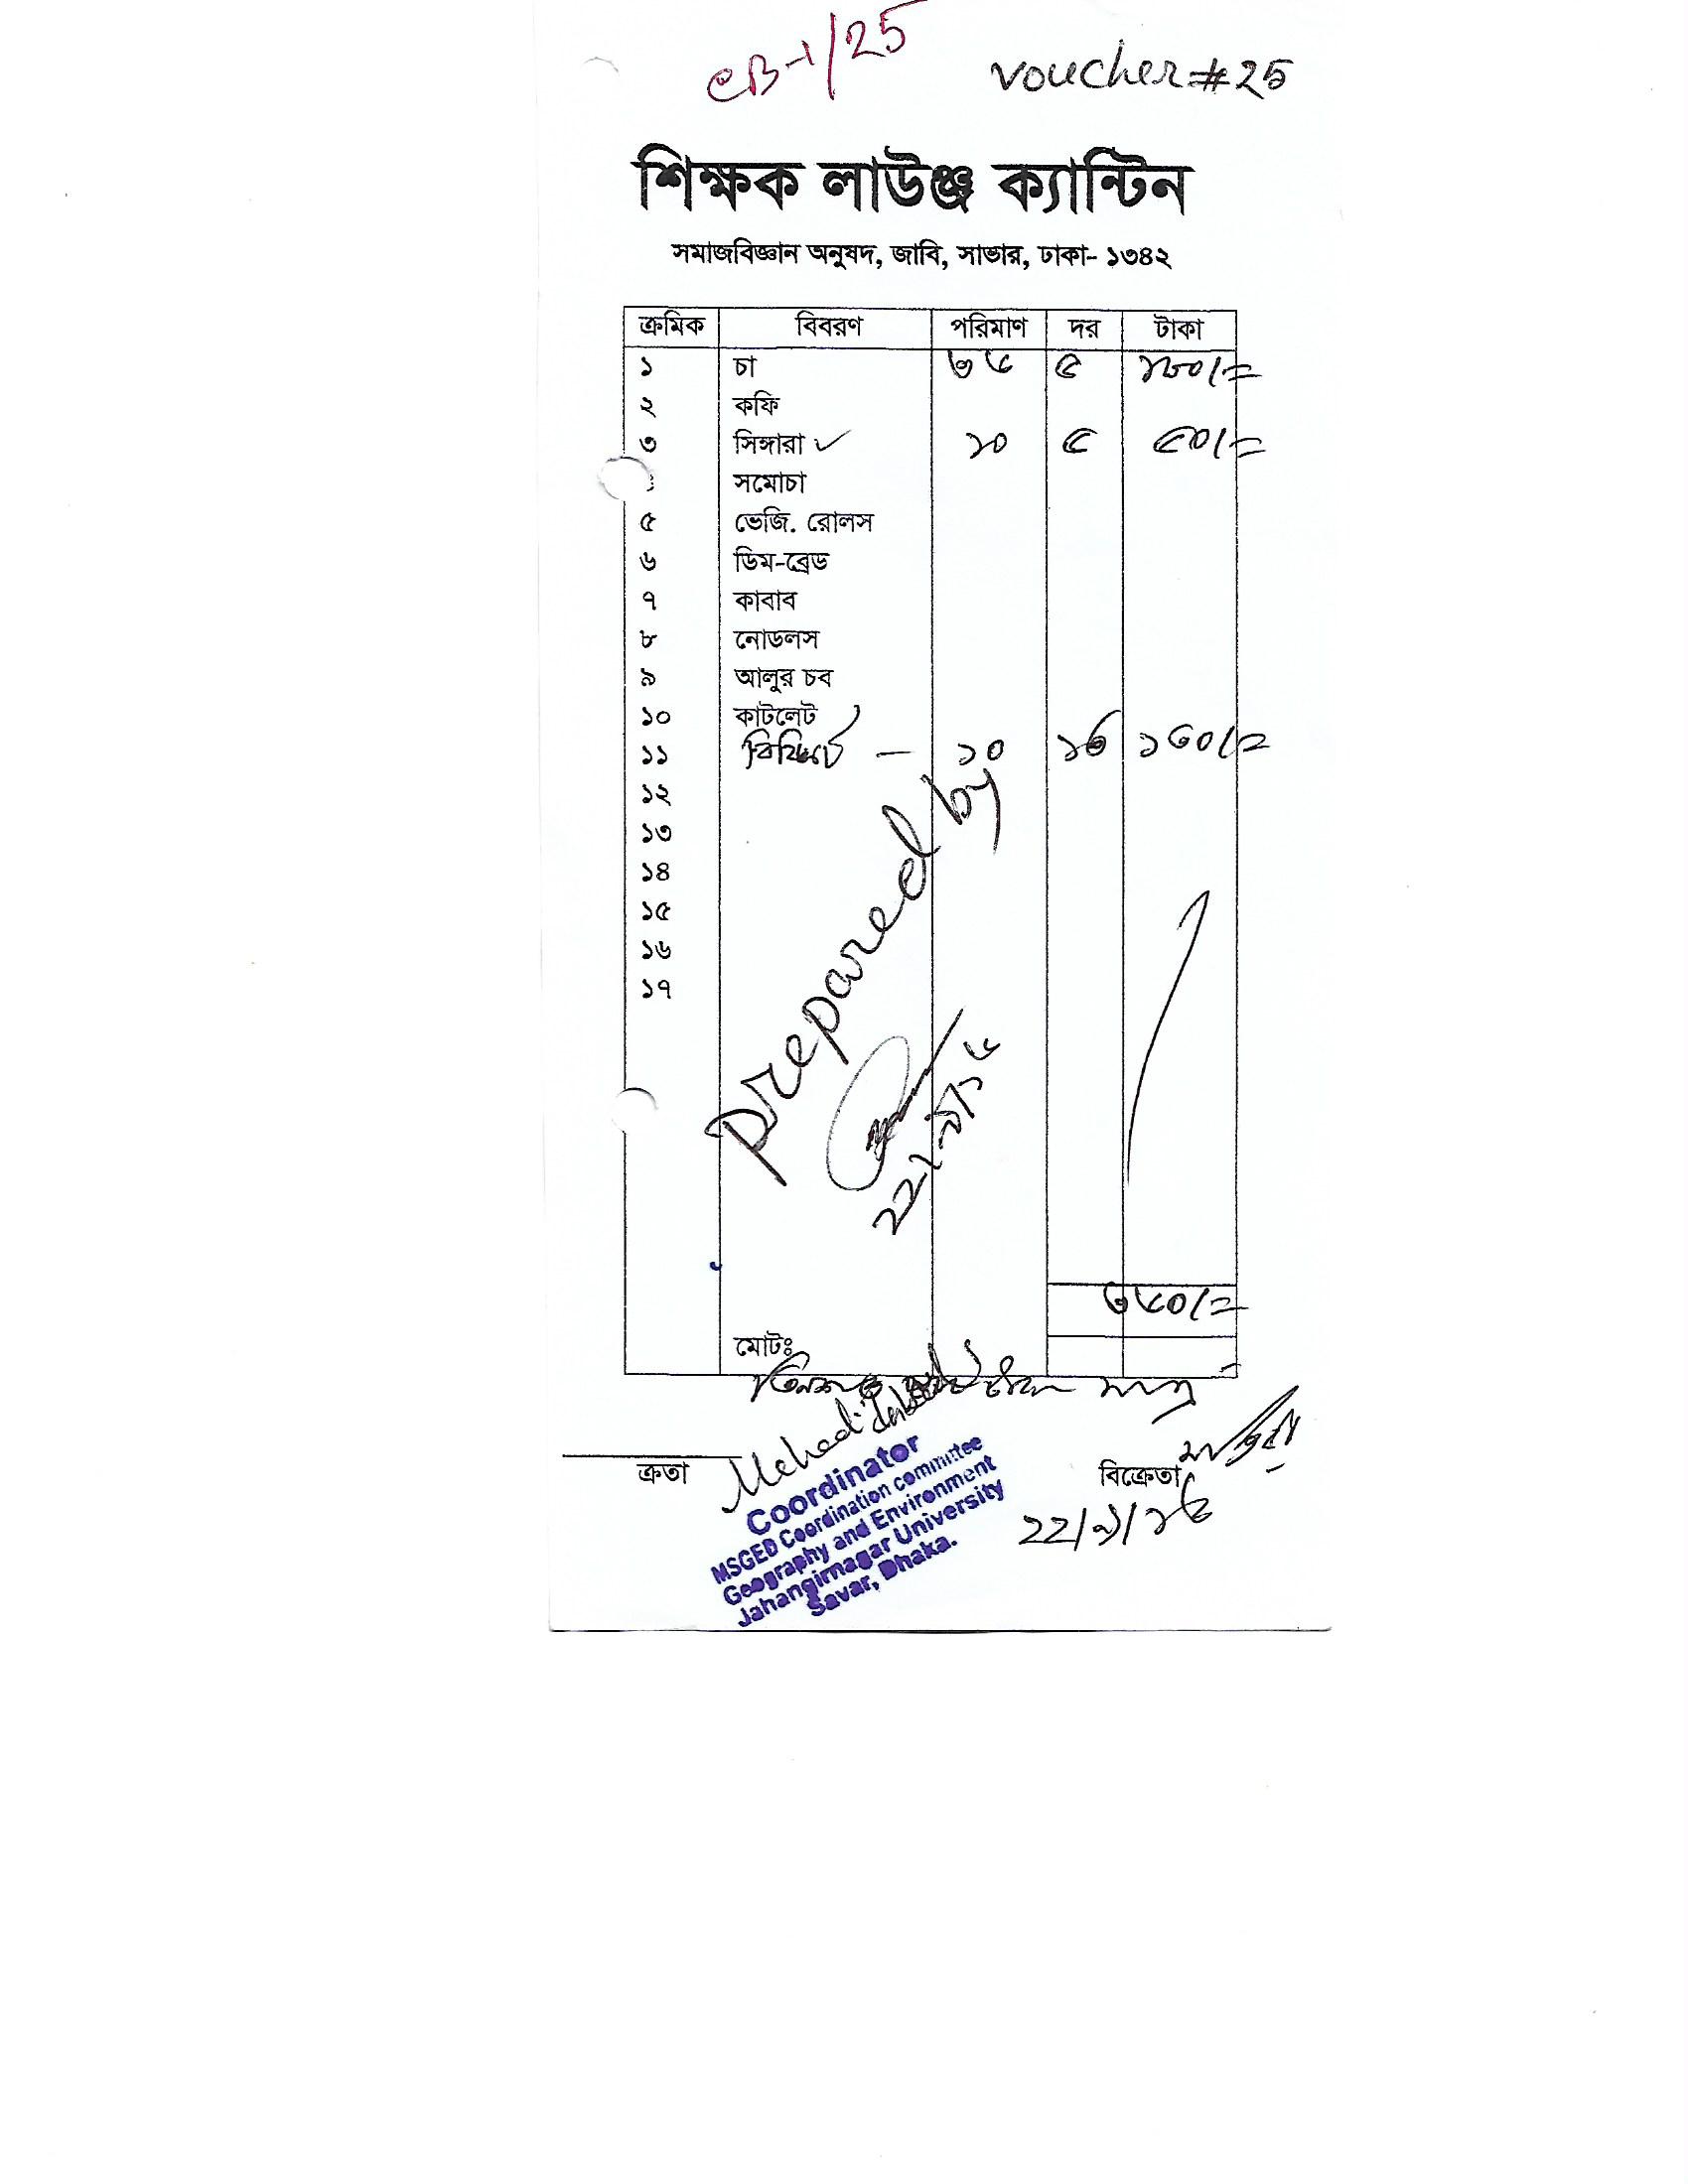 CB-1/25
Voucher # 25
শিক্ষক লাউঞ্জ ক্যান্টিন
সমাজবিজ্ঞান অনুষদ, জাবি, সাভার, ঢাকা- ১৩৪২
ক্রমিক বিবরণ পরিমাণ দর টাকা
১ চা ৩৬ ৫ ১৮০/=
২ কফি
৩ সিঙ্গারা ✓ ১০ ৫ ৫০/=
সমোচা
৫ ভেজি. রোলস
৬ ডিম-ব্রেড
৭ কাবাব
৮ নোডলস
৯ আলুর চব
১০ কাটলেট
১১ বিস্কিট — ১০ ১৩ ১৩০/=
১২
১৩
১৪
১৫
১৬
১৭
Prepared by
২২/৯/১৬
৩৬০/=
মোটঃ
তিনশত টাকা মাত্র
ক্রতা
Mehedi
বিক্রেতা
২২/৯/১৬
Coordinator
MSGED Coordination committee
Geography and Environment
Jahangirnagar University
Savar, Dhaka.